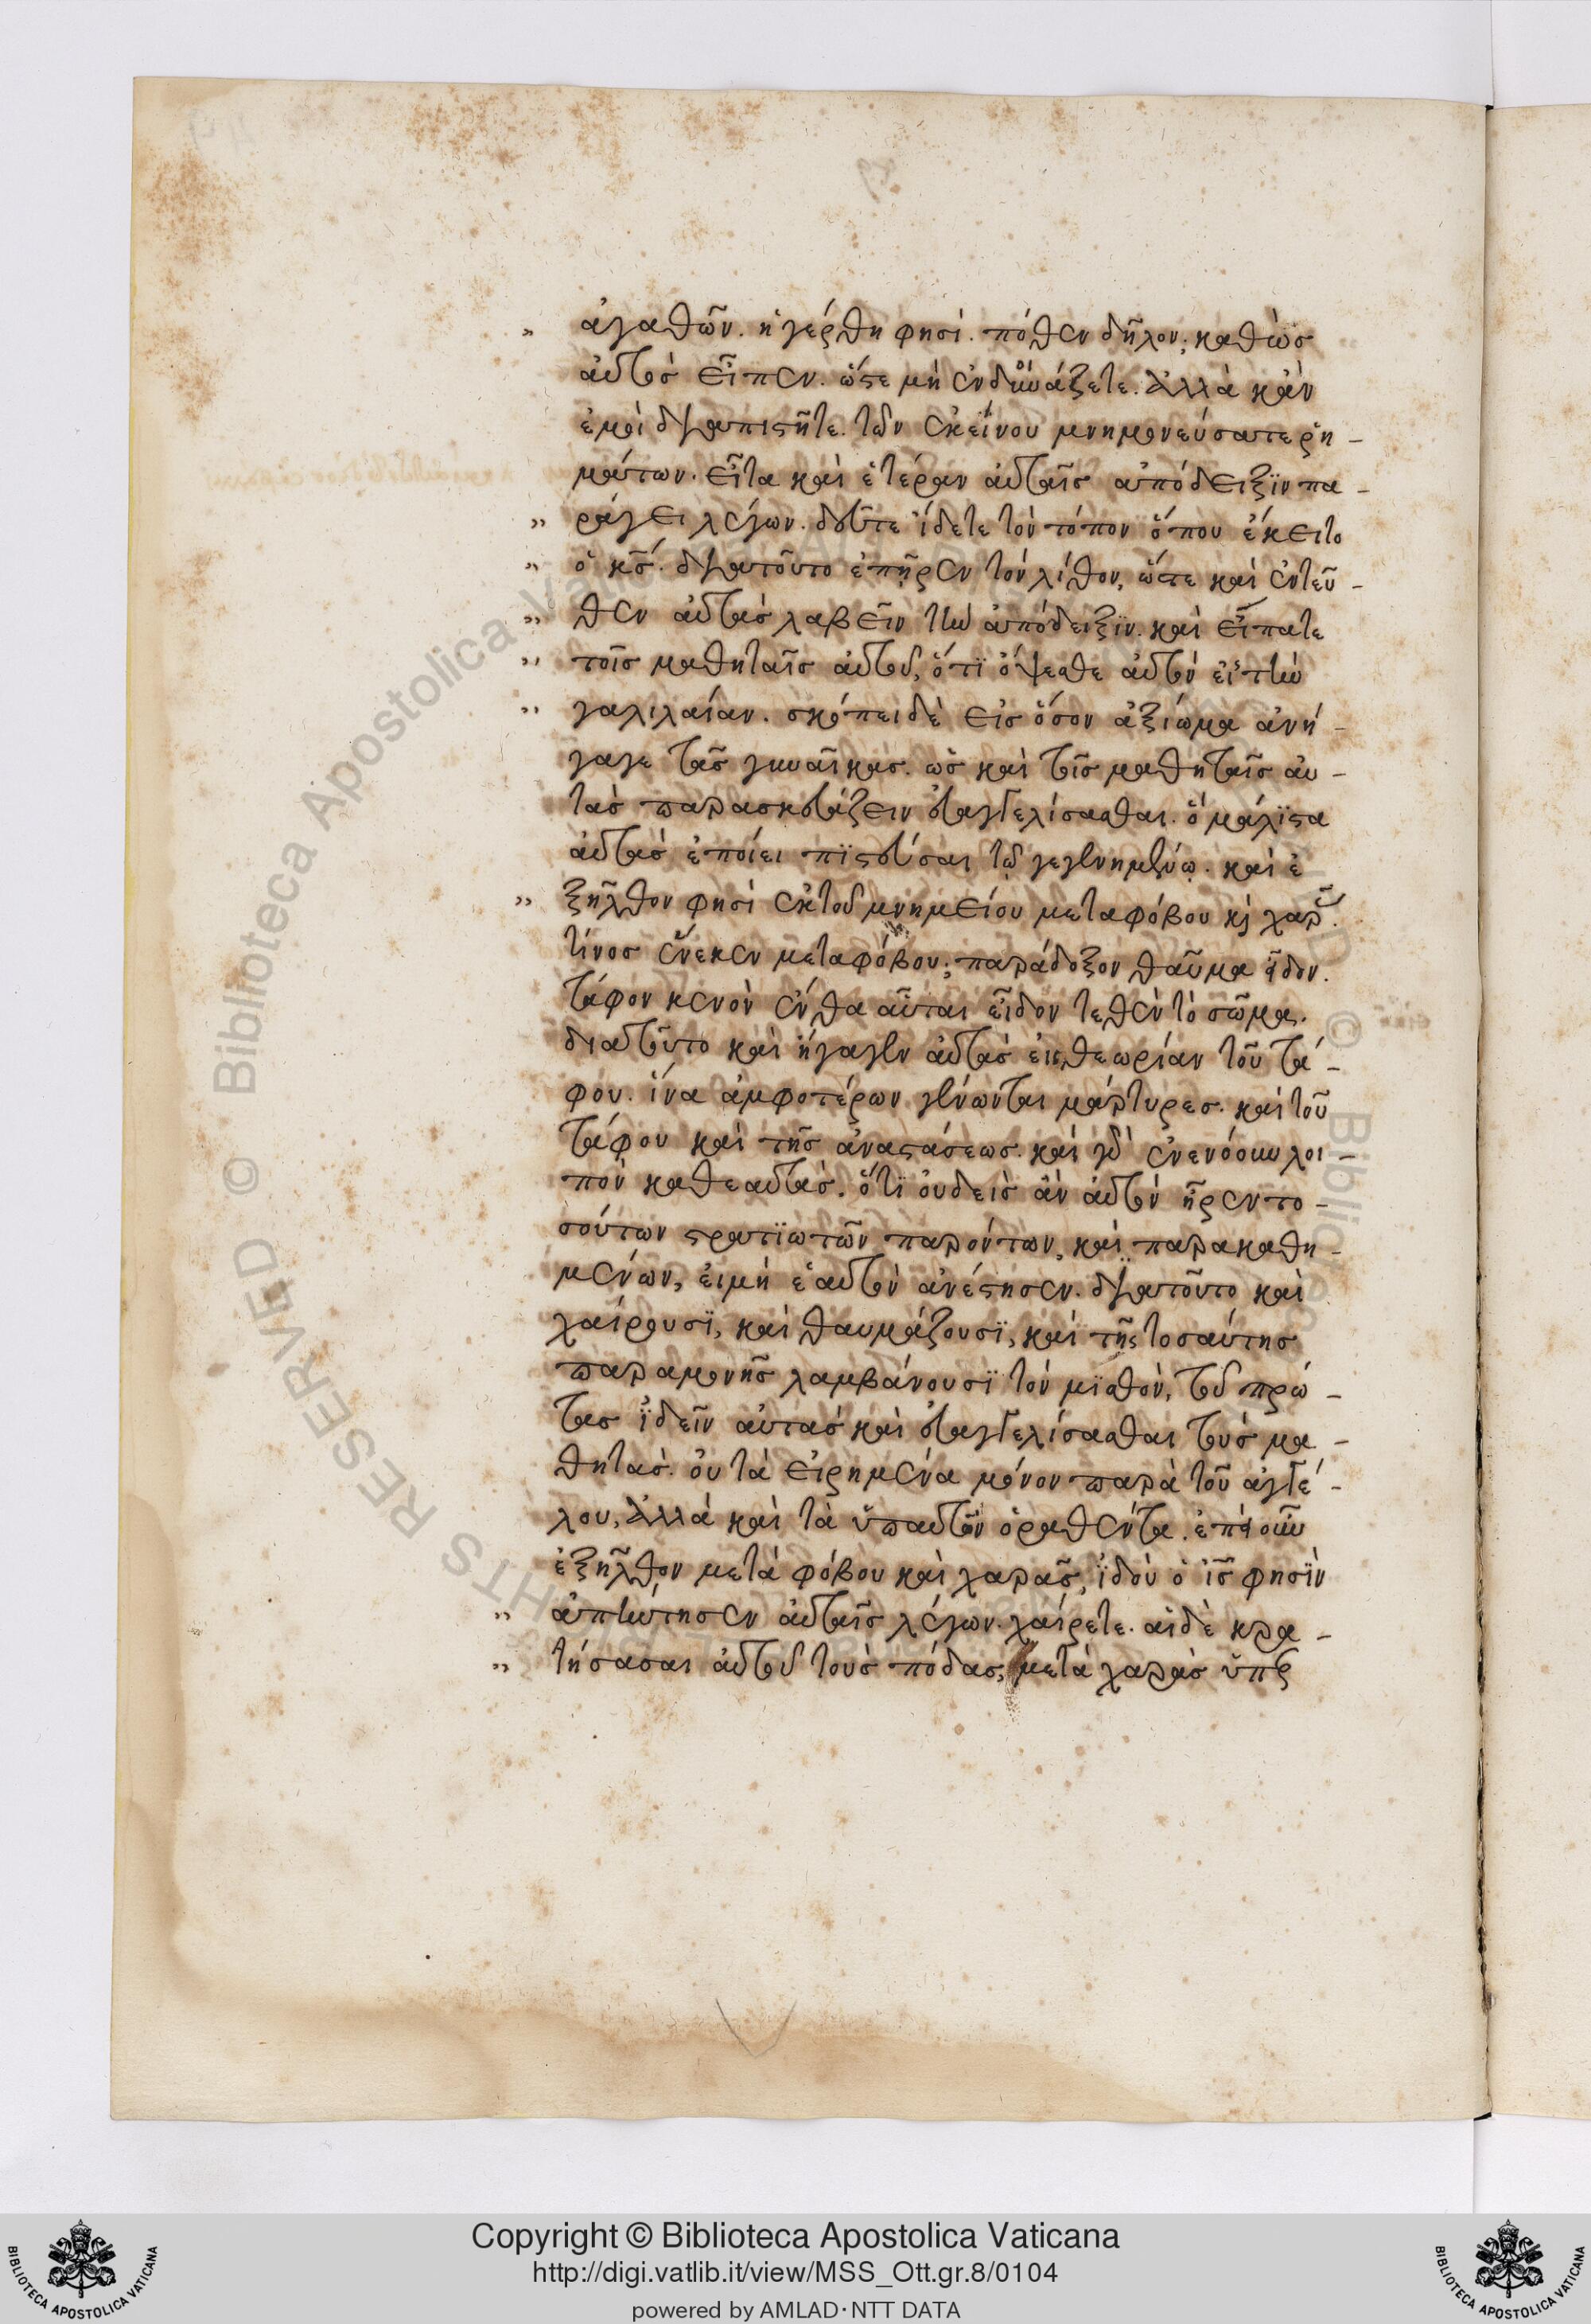 ἀγαθῶν. ἠγέρθη φησί. πόθεν δῆλον; καθὼς
αὐτὸς εἶπεν. ὥστε μὴ ἐνδυάζετε. ἀλλὰ κἂν
ἐμοὶ διαπιστῆτε. τῶν ἐκείνου μνημονεύσατε ῥη-
μάτων. εἶτα καὶ ἑτέραν αὐταῖς ἀπόδειξϊν πα-
ράγει λέγων. δεῦτε ἴδετε τὸν τόπον ὅπου ἔκειτο
ὁ κς̄. διατοῦτο ἐπῆρεν τὸν λίθον, ὥστε καὶ ἐντεῦ-
θεν αὐτὰς λαβεῖν τὴν ἀπόδειξϊν. καὶ εἴπατε
τοῖς μαθηταῖς αὐτοῦ, ὅτϊ ὄψεσθε αὐτὸν εἰς τὴν
γαλιλαίαν. σκόπει δὲ εἰς ὅσον ἀξίωμα ἀνή-
γαγε τὰς γυναῖκας. ὡς καὶ τοῖς μαθηταῖς αὐ-
τὰς παρασκευάζειν εὐαγγελίσασθαι. ὃ μάλϊστα
αὐτὰς ἐποίει πϊστεῦσαι τῷ γεγενημένῳ. καὶ ἐ
ξῆλθον φησὶ ἐκ τοῦ μνημείου μετα φόβου κ̀ χαρᾶς.
τίνος ἕνεκεν μετα φόβου; παράδοξον θαῦμα ἦδον.
τάφον κενὸν ἔνθα αὗται εἶδον τεθὲν τὸ σῶμα.
διατοῦτο καὶ ἤγαγεν αὐτὰς εἰς θεωρίαν τοῦ τά-
φου. ἵνα ἀμφοτέρων γένωνται μάρτυρες. καὶ τοῦ
τάφου καὶ τῆς ἀναστάσεως. καὶ γὰρ ἐνενόουν λοι-
πὸν καθεαυτὰς. ὅτϊ οὐδεὶς ἂν αὐτὸν ἦρεν το-
σούτων στρατϊωτῶν παρόντων, καὶ παρακαθη-
μένων, εἰ μὴ ἑαυτὸν ἀνέστησεν. διατοῦτο καὶ
χαίρουσϊ, καὶ θαυμάζουσϊ, καὶ τῆς τοσαύτης
παραμονῆς λαμβάνουσϊ τὸν μϊσθὸν, τοῦ πρώ-
τας ἰδεῖν αὐτὰς καὶ εὐαγγελίσασθαι τοὺς μα-
θητάς. οὐ τὰ εἰρημένα μόνον παρὰ τοῦ ἀγγέ-
λου, ἀλλὰ καὶ τὰ ὑπαυτῶν ὁραθέντα. ἐπεὶ οὖν
ἐξῆλθον μετὰ φόβου καὶ χαρᾶς, ἰδοὺ ὁ ις̄ φησϊν
ἀπήντησεν αὐταῖς λέγων. χαίρετε. αἱ δὲ κρα-
τήσασαι αὐτοῦ τοὺς πόδας, μετὰ χαρᾶς ὑπερ